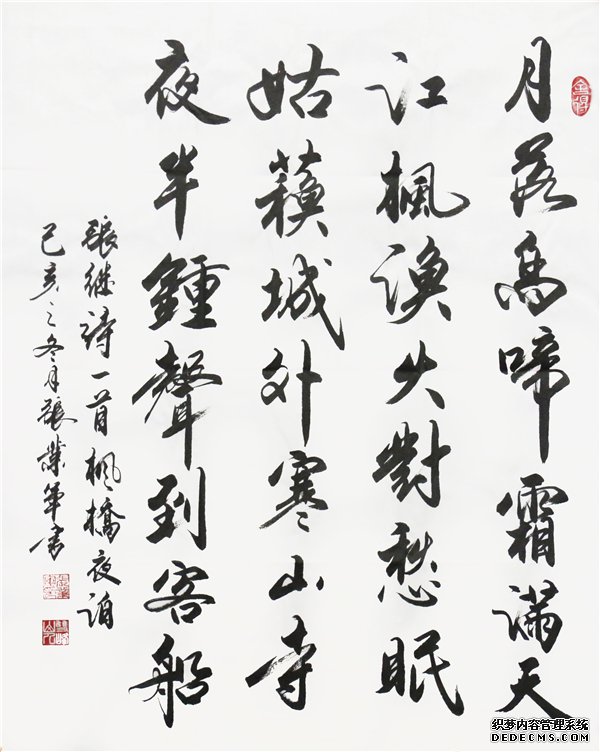 月落烏啼霜滿天
江楓漁火對愁眠
姑蘓城外寒山寺
夜半鍾聲到客船
張继詩一首楓橋夜泊
己亥之冬月張業軍书
织梦内容管理系统
DEDECMS.COM